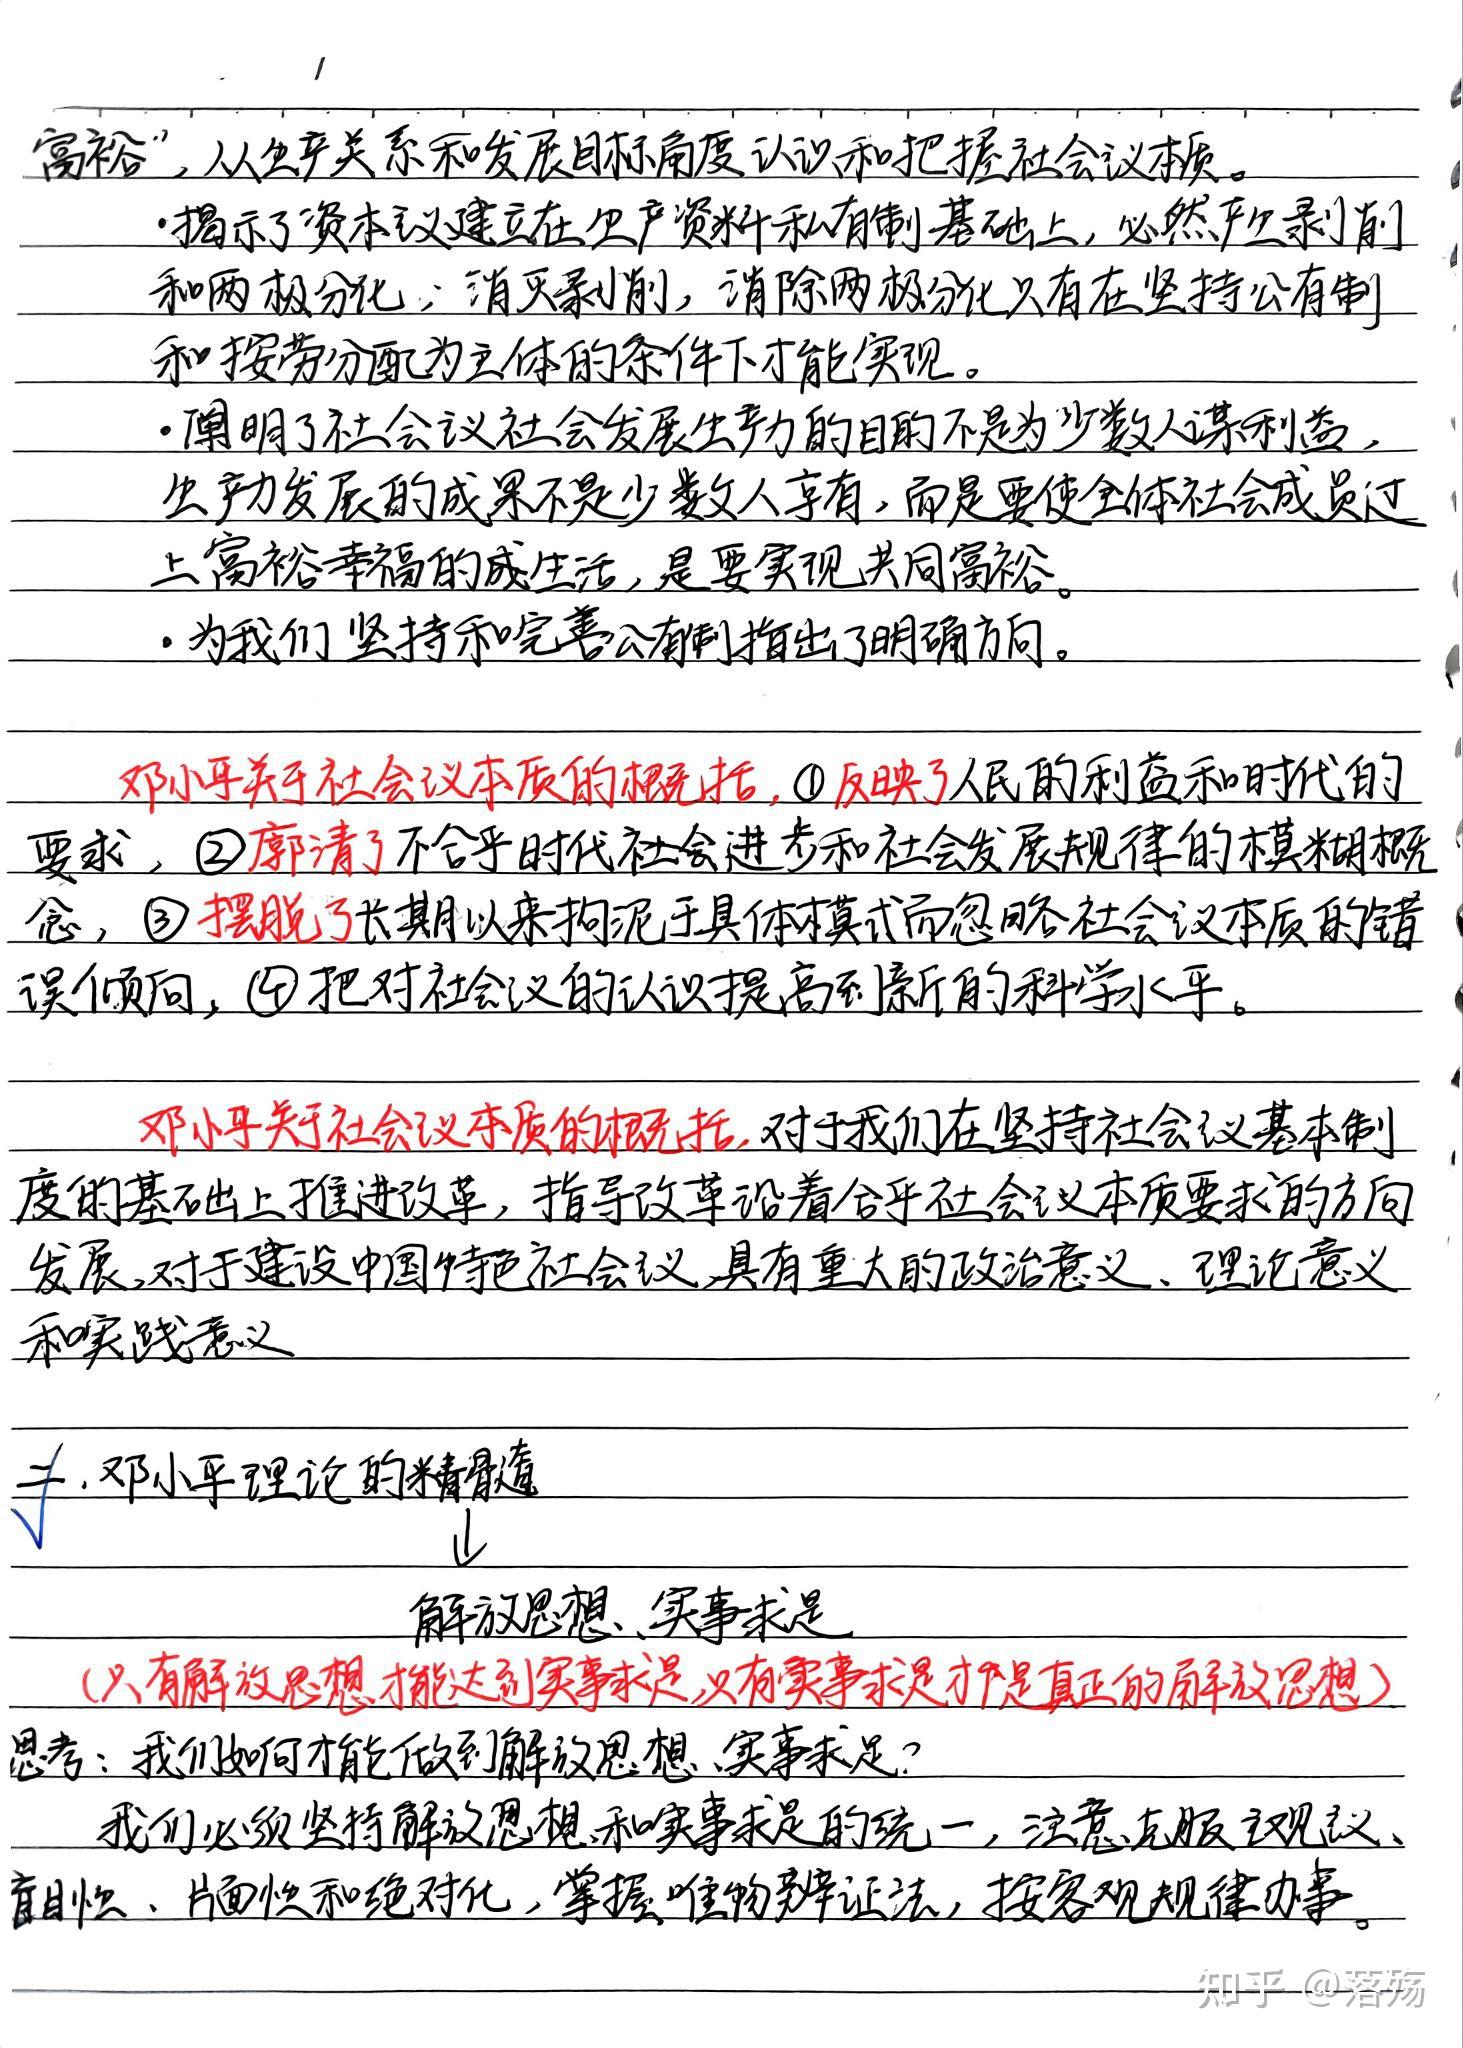 富裕”，从生产关系和发展目标角度认识和把握社会议本质。
·揭示了资本主议建立在生产资料私有制基础上，必然产生剥削
和两极分化；消灭剥削，消除两极分化只有在坚持公有制
和按劳分配为主体的条件下才能实现。
·阐明了社会议社会发展生产力的目的不是为少数人谋利益，
生产力发展的成果不是少数人享有，而是要使全体社会成员过
上富裕幸福的成生活，是要实现共同富裕。
·为我们坚持和完善公有制指出了明确方向。
邓小平关于社会议本质的概括，①反映了人民的利益和时代的
要求，②廓清了不合乎时代社会进步和社会发展规律的模糊概
念，③摆脱了长期以来拘泥于具体模式而忽略社会议本质的错
误倾向，④把对社会议的认识提高到新的科学水平。
邓小平关于社会议本质的概括，对于我们在坚持社会议基本制
度的基础上推进改革，指导改革沿着合乎社会议本质要求的方向
发展，对于建设中国特色社会议，具有重大的政治意义、理论意义
和实践意义
二．邓小平理论的精髓
↓
解放思想、实事求是
（只有解放思想才能达到实事求是，只有实事求是才是真正的解放思想）
思考：我们如何才能做到解放思想、实事求是？
我们必须坚持解放思想和实事求是的统一，注意克服主观议、
盲目性、片面性和绝对化，掌握唯物辩证法，按客观规律办事。
知乎 @落殇